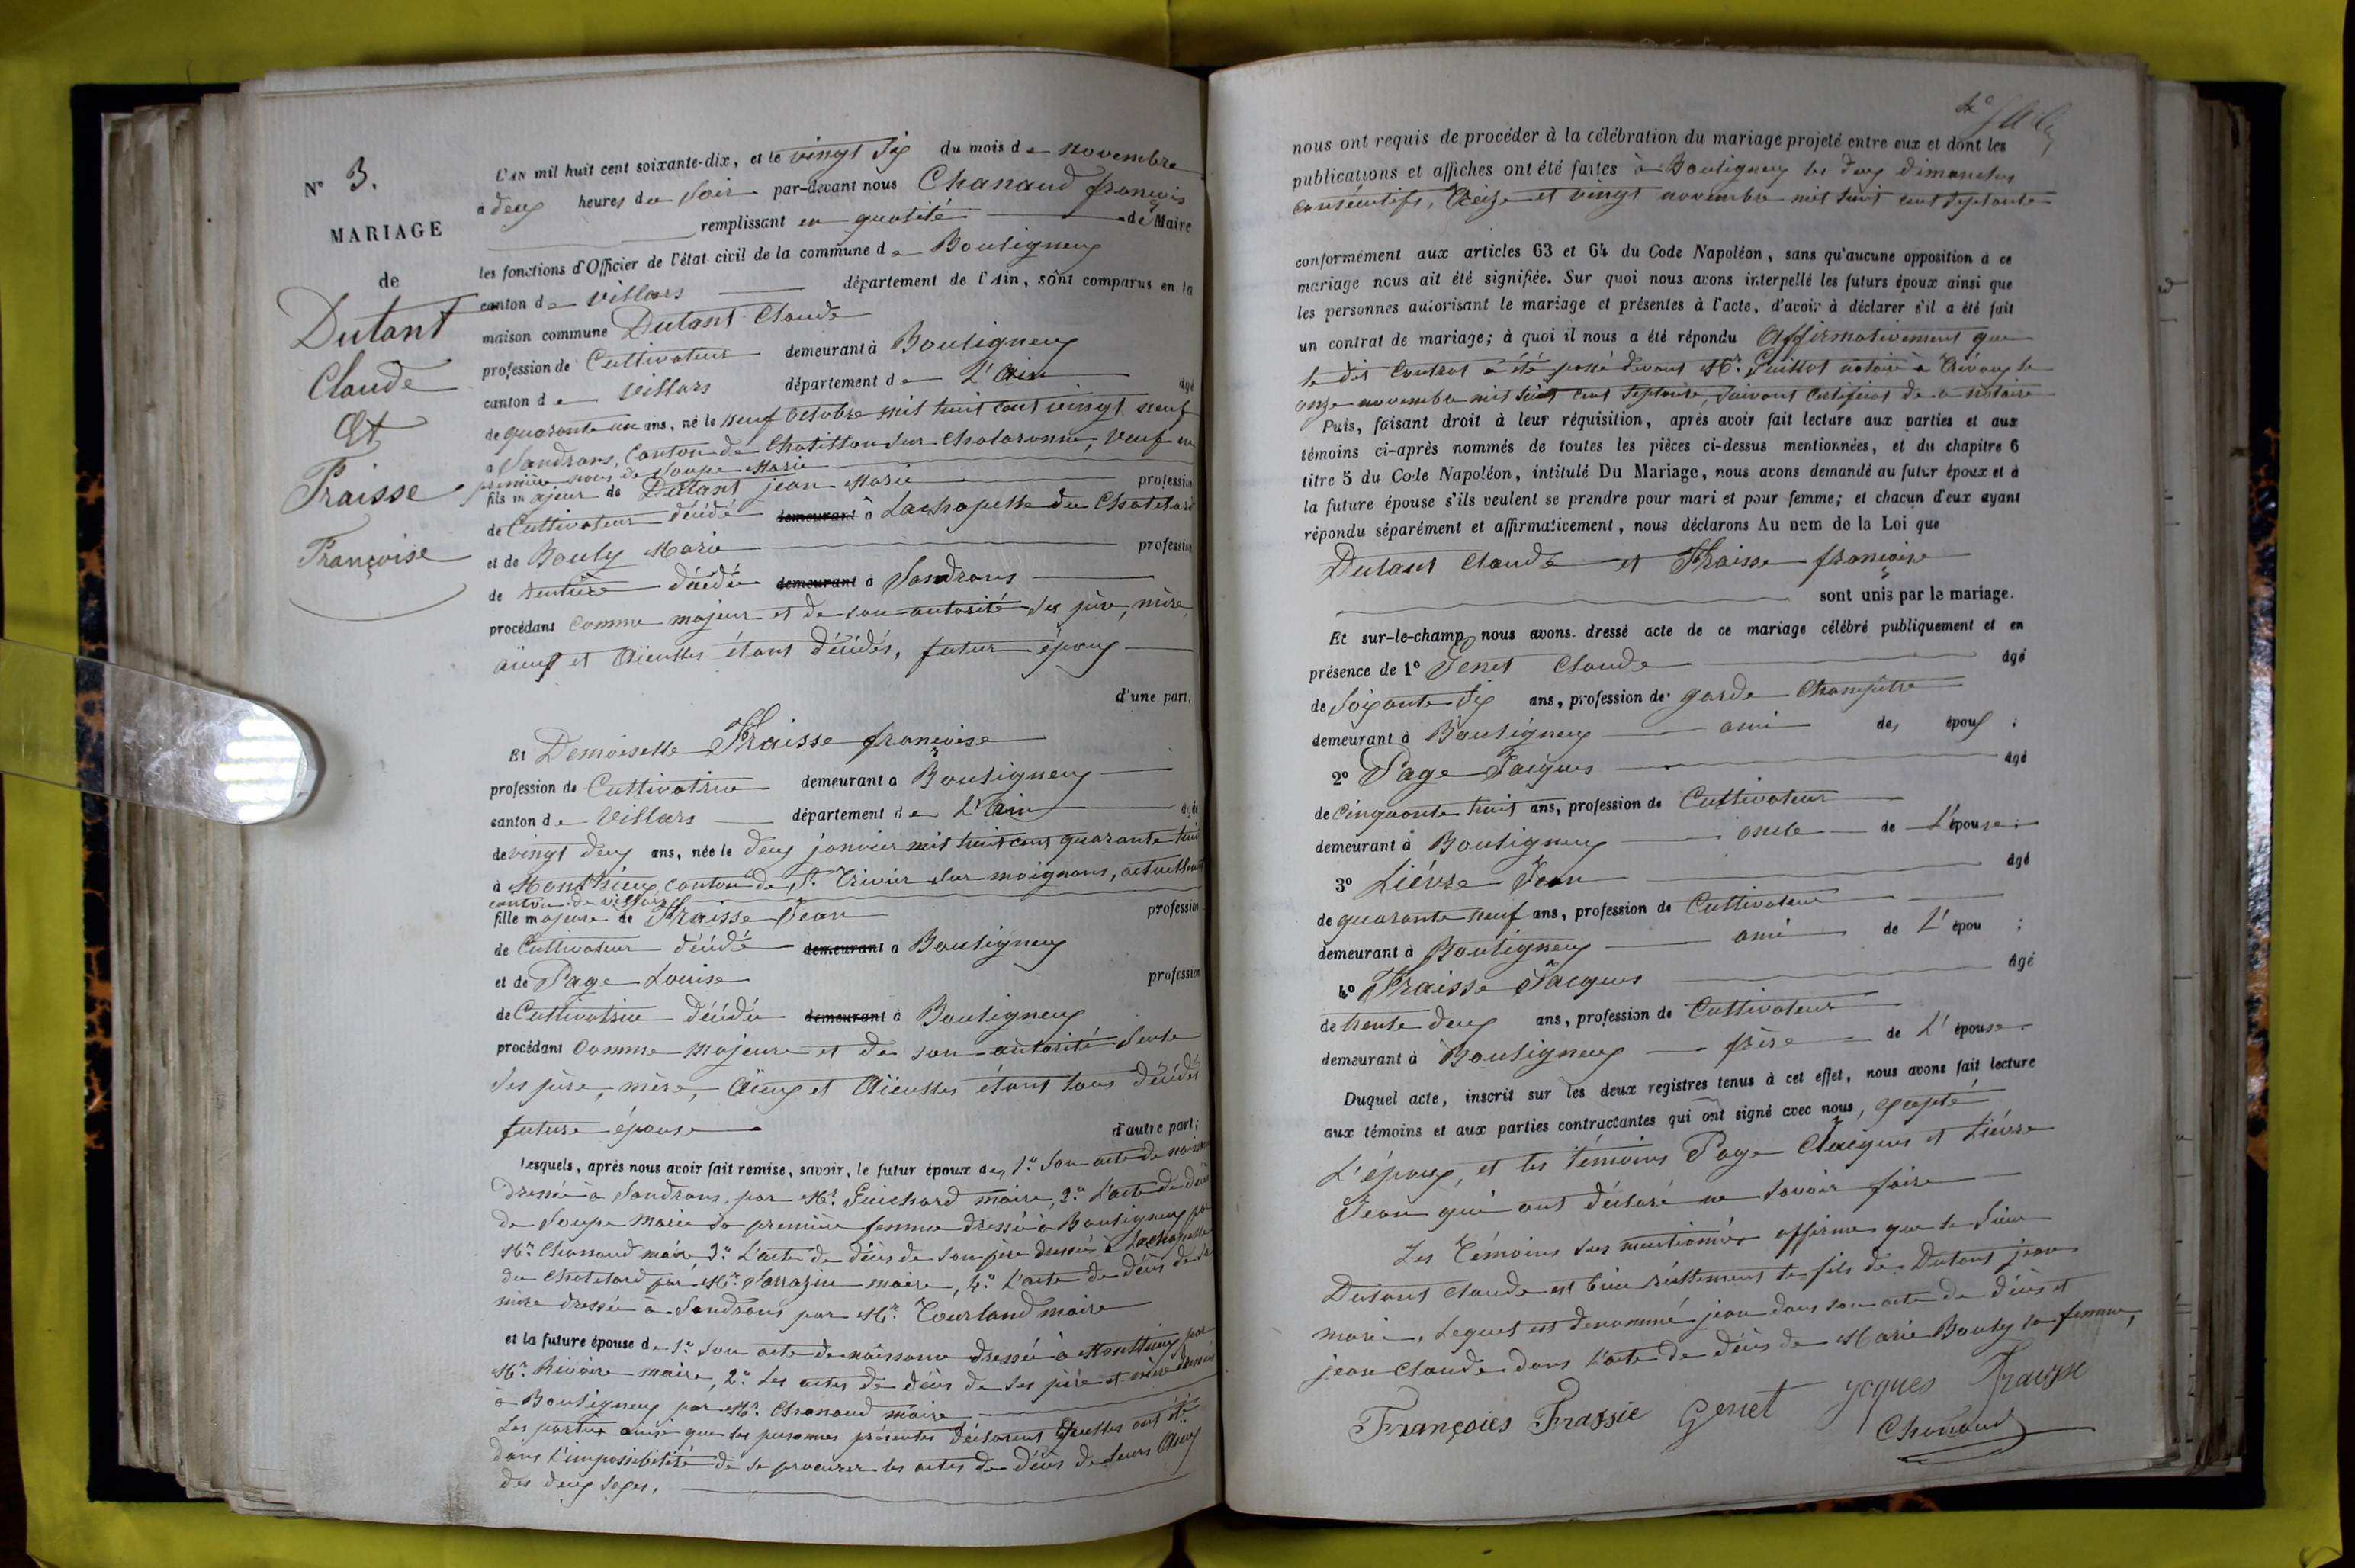 N° 3.
MARIAGE
de
Dutant
Claude
Et
Fraisse
Françoise
L'AN mil huit cent soixante-dix, et le vingt six du mois de novembre
à deux heures du soir par-devant nous Chanaud françois
remplissant en qualité de Maire
les fonctions d'Officier de l'état civil de la commune de Bouligneux
canton de villars département de l'Ain, sont comparus en la
maison commune Dutant Claude
profession de Cultivateur demeurant à Bouligneux
canton de villars département de L'Ain âgé
de quarante un ans, né le neuf octobre mil huit cent vingt neuf
à Sandrans, Canton de Chatillon sur Chalaronne, veuf en
première noces de Soupe Marie
fils majeur de Dutant jean Marie profession
de Cultivateur décédé demeurant à Lachapelle du Chatelard
et de Bouly Marie profession
de rentière décédée demeurant à Sandrans
procédant comme majeur et de son autorité ses père, mère,
aïeux et aïeulles étant décédés, futur époux
d'une part;
Et Demoiselle Fraisse françoise
profession de Cultivatrice demeurant à Bouligneux
canton de Villars département de L'Ain âgée
de vingt deux ans, née le deux janvier mil huit cent quarante huit
à Monthieux, canton de St. Trivier sur moignans, actuellement
canton de villars
fille majeure de Fraisse Jean profession
de Cultivateur décédé demeurant à Bouligneux
et de Page Louise profession
de Cultivatrice décédée demeurant à Bouligneux
procédant comme majeure et de son autorité seule
ses père, mère, aïeux et aïeulles étant tous décédés
future épouse
d'autre part;
Lesquels, après nous avoir fait remise, savoir, le futur époux de, 1° son acte de naissance
dressée à Sandrans par Mr. Guichard maire, 2° L'acte de décès
de Soupe Marie sa première femme dressé à Bouligneux par
Mr. Chanaud maire, 3° L'acte de décès de son père dressée à Lachapelle
du Chatelard par Mr. Sarrazin maire, 4° L'acte de décès de sa
mère dressée à Sandrans par Mr. Tourland maire
et la future épouse de 1° son acte de naissance dressée à Monthieux par
Mr. Rivoire maire, 2° Les actes de décès de ses père et mère dressés
à Bouligneux par Mr. Chanaud maire
Les parties ainsi que les personnes présentes déclarent qu'elles ont été
dans l'impossibilité de se procurer les actes de décès de leurs aïeux
des deux sexes.
nous ont requis de procéder à la célébration du mariage projeté entre eux et dont les
publications et affiches ont été faites à Bouligneux les deux dimanches
consécutifs, treize et vingt novembre mil huit cent septante
conformément aux articles 63 et 64 du Code Napoléon, sans qu'aucune opposition à ce
mariage nous ait été signifiée. Sur quoi nous avons interpellé les futurs époux ainsi que
les personnes autorisant le mariage et présentes à l'acte, d'avoir à déclarer s'il a été fait
un contrat de mariage; à quoi il nous a été répondu Affirmativement que
le dit Contrat a été passé devant Mr. Guillot notaire à Trévoux le
onze novembre mil huit cent septante, suivant certificat de ce notaire
Puis, faisant droit à leur réquisition, après avoir fait lecture aux parties et aux
témoins ci-après nommés de toutes les pièces ci-dessus mentionnées, et du chapitre 6
titre 5 du Code Napoléon, intitulé Du Mariage, nous avons demandé au futur époux et à
la future épouse s'ils veulent se prendre pour mari et pour femme; et chacun d'eux ayant
répondu séparément et affirmativement, nous déclarons Au nom de la Loi que
Dutant Claude et Fraisse françoise
sont unis par le mariage.
Et sur-le-champ nous avons dressé acte de ce mariage célébré publiquement et en
présence de 1° Genet Claude âgé
de soixante six ans, profession de garde Champêtre
demeurant à Bouligneux ami des époux ;
2° Page Jacques âgé
de cinquante huit ans, profession de Cultivateur
demeurant à Bouligneux oncle de L'épouse ;
3° Lièvre Jean âgé
de quarante neuf ans, profession de Cultivateur
demeurant à Bouligneux ami de L'épou ;
4° Fraisse Jacques âgé
de trente deux ans, profession de Cultivateur
demeurant à Bouligneux frère de L'épouse.
Duquel acte, inscrit sur les deux registres tenus à cet effet, nous avons fait lecture
aux témoins et aux parties contractantes qui ont signé avec nous, excepté
L'époux, et les témoins Page Jacques et Lièvre
Jean qui ont déclaré ne savoir faire
Les Témoins sus mentionnés affirme que le sieur
Dutant Claude est bien réellement le fils de Dutant jean
marie, Lequel est denommé jean dans son acte de décès et
jean Claude dans l'acte de décès de Marie Bouly sa femme,
Françoies Frassie Genet Jcques Fraisse
Chanaud